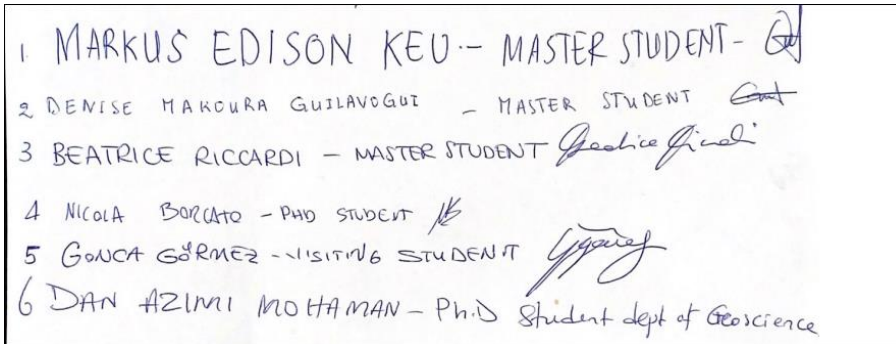 1 MARKUS EDISON KEU - MASTER STUDENT -
2 DENISE MAKOURA GUILAVOGUI - MASTER STUDENT
3 BEATRICE RICCARDI - MASTER STUDENT
4 NICOLA BORCATO - PHD STUDENT
5 GONCA GÖRMEZ - VISITING STUDENT
6 DAN AZIMI MOHAMAN - Ph.D Student dept of Geoscience